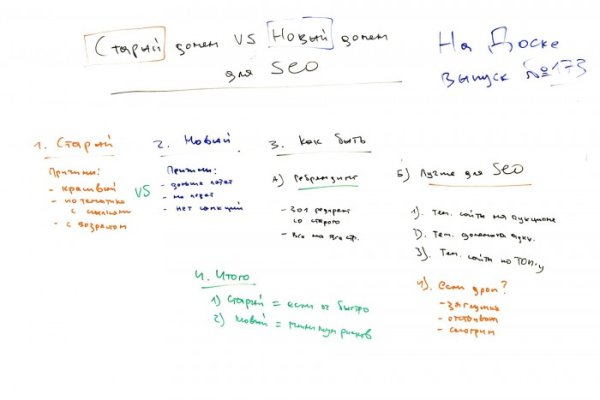 Старый домен VS Новый домен
для SEO
На Доске
выпуск №173
1. Старый
Причины:
- красивый
- по тематике
с ссылками
- с возрастом
VS
2. Новый
Причины:
- дольше
- нет санкций
3. Как быть
А) Ребрендинг
- 301 редирект
со старого
- Все на все стр.
Б) Лучше для SEO
1). Тем. сайты на аукционе
2). Тем. домена
3). Тем. сайты по ТОП-у
4). если дроп?
- загнулив
- отстаиваем
- смотрим
4. Итого
1) Старый = если оч быстро
2) Новый = минимум рисков